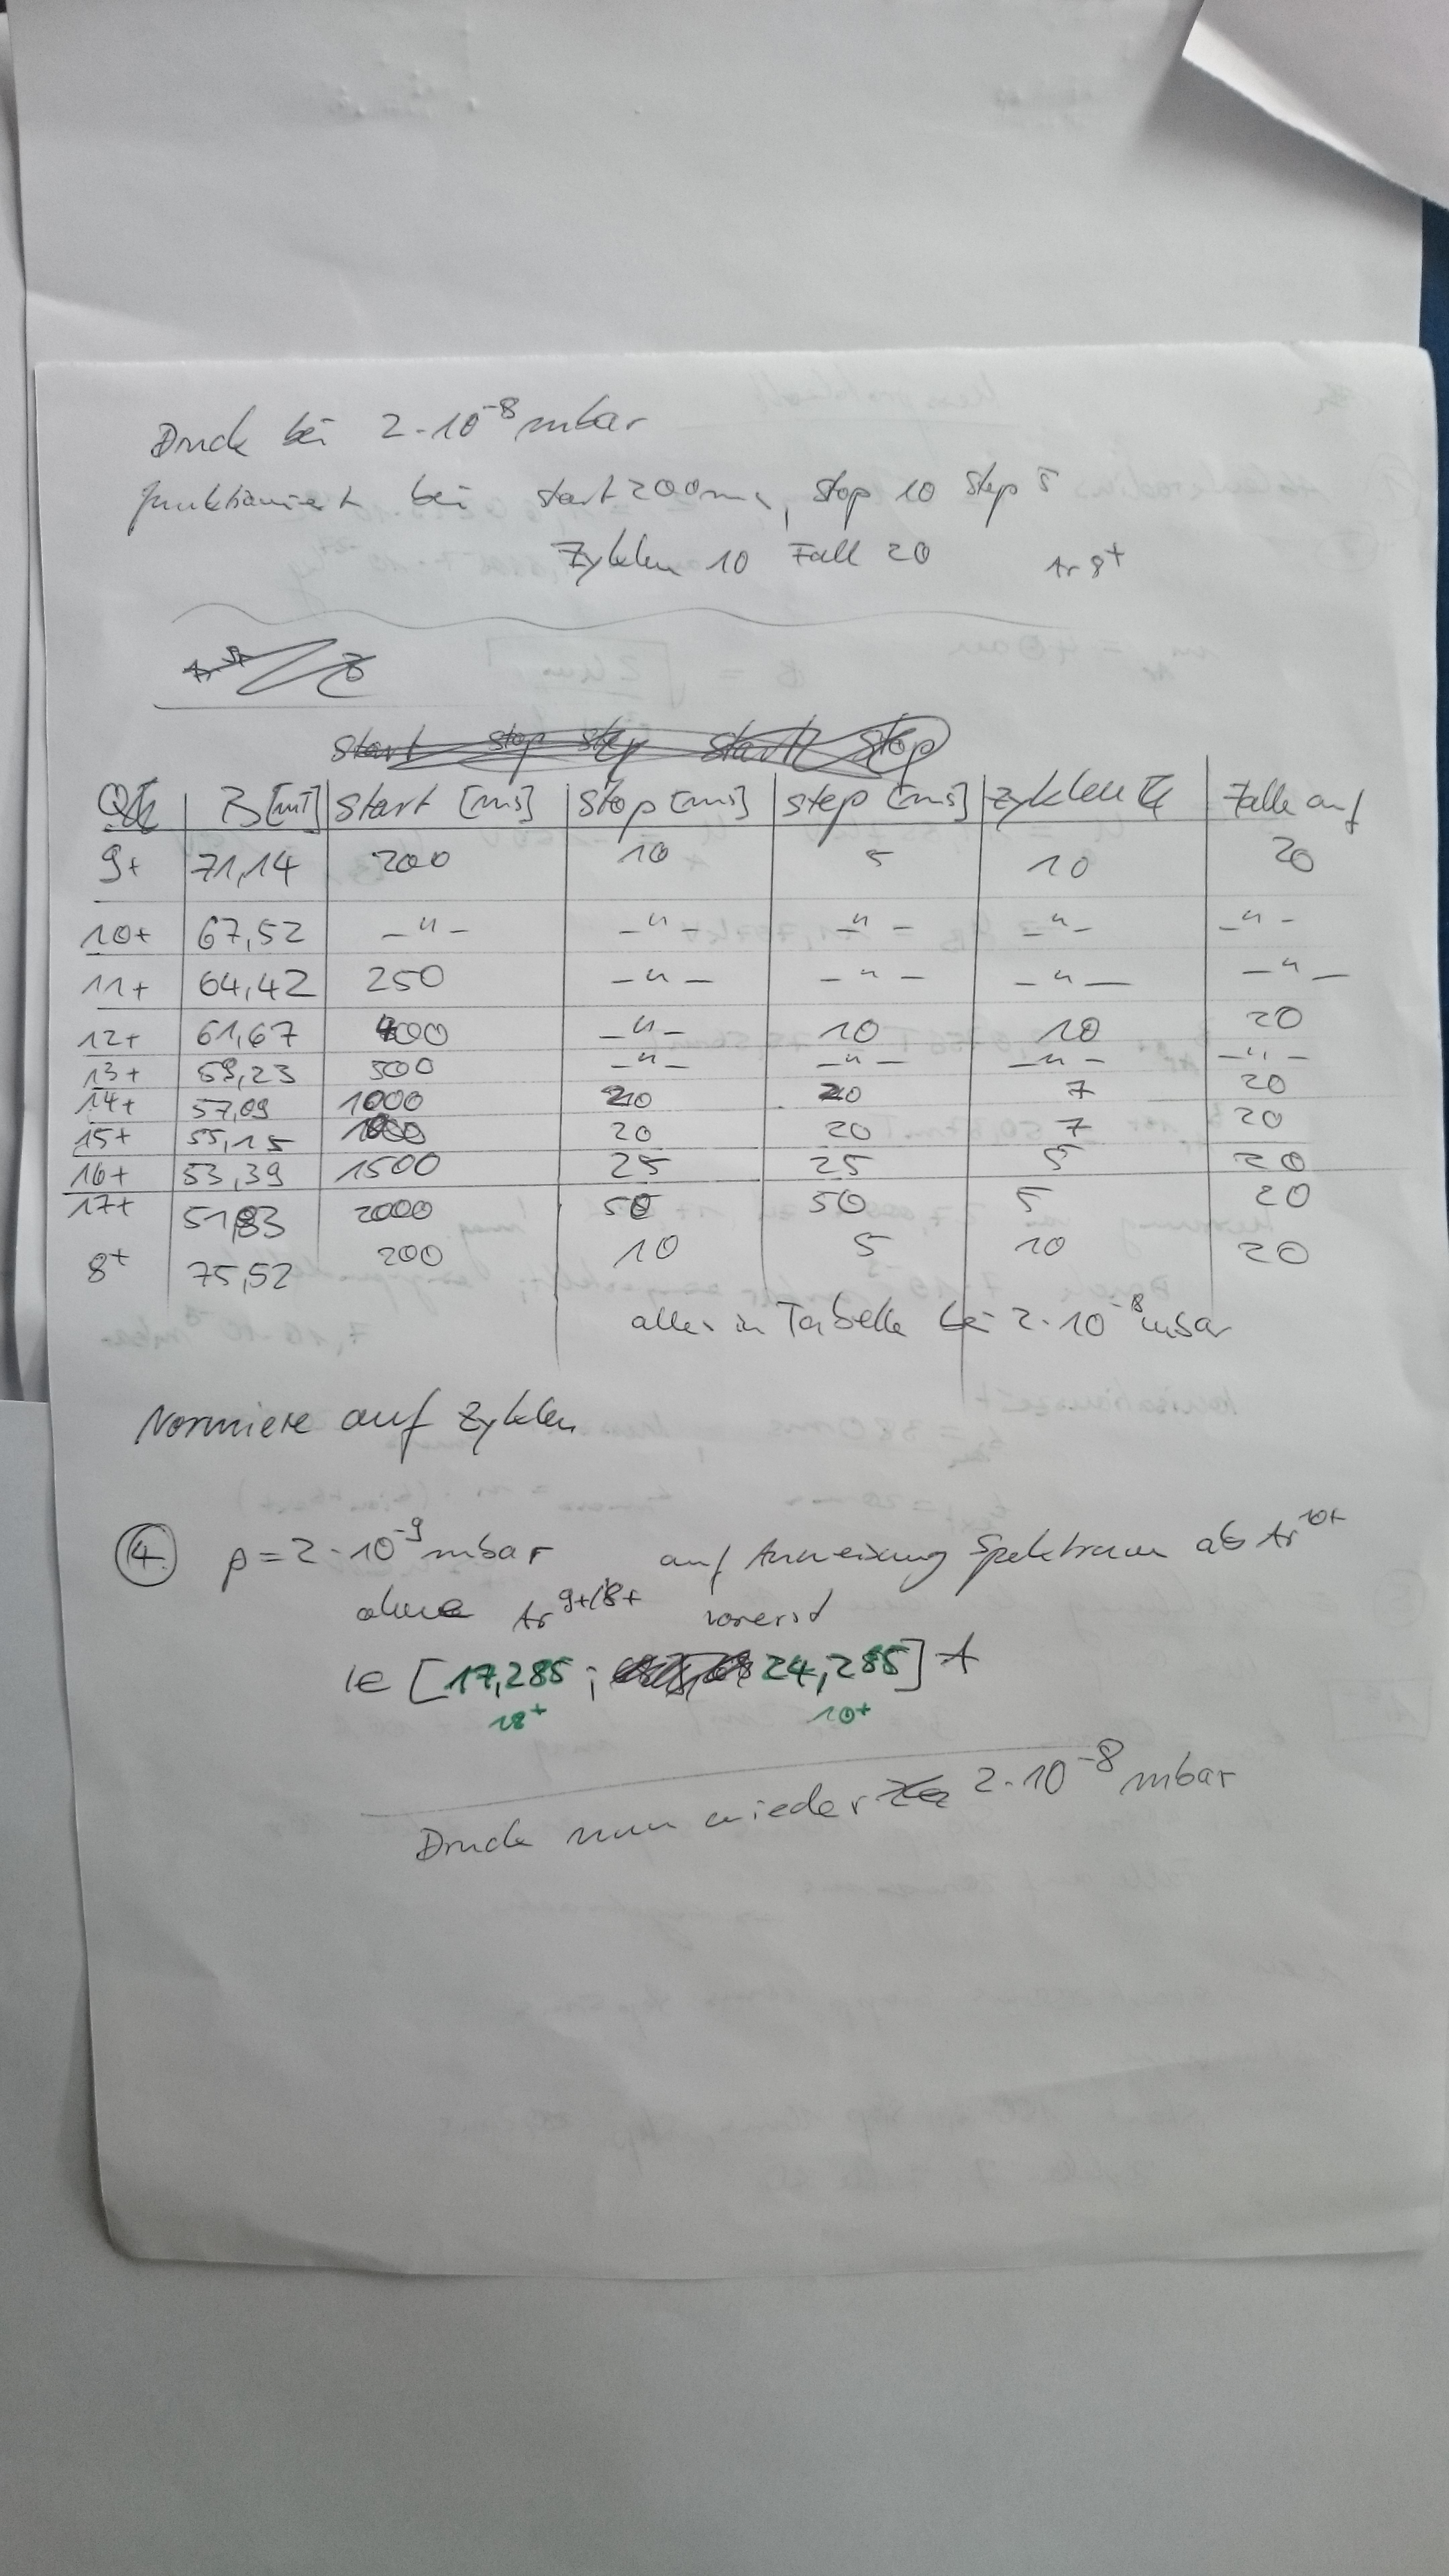 Druck bei 2·10⁻⁸ mbar
funktioniert bei start 200ms, stop 10 step 5
Zyklen 10 Falle 20 Ar 8+
Start stop step start stop
B [mT] Start [ms] Stop [ms] step [ms] Zyklen Falle auf
9+ 71,14 200 10 5 10 20
10+ 67,52 -"- -"- -"- -"- -"-
11+ 64,42 250 -"- -"- -"- -"-
12+ 61,67 400 -"- 10 10 20
13+ 59,23 500 -"- -"- -"- -"-
14+ 57,09 1000 20 20 7 20
15+ 55,15 20 20 7 20
16+ 53,39 1500 25 25 5 20
17+ 51,83 2000 50 50 5 20
8+ 75,52 200 10 5 10 20
alles in Tabelle bei 2·10⁻⁸ mbar
Normiere auf Zyklen
4. p = 2·10⁻⁹ mbar auf Anweisung Spektrum ab Ar¹⁰⁺
ohne Ar⁹⁺/⁸⁺ vorerst
I∈ [17,285 ; 24,285] A
18+ 10+
Druck nun wieder 2·10⁻⁸ mbar